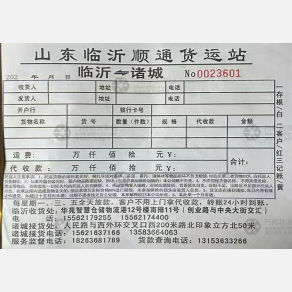 山东临沂顺通货运站
临沂⇌诸城 No0023601
202 年 月 日
收货人 地址 电话
发货人 地址 电话
开户行 银行卡号
货物名称 货号 数量(件数) 规格 代收款 金额
运费: 万 仟 佰 拾 元 ¥: 合计:
代收款: 万 仟 佰 拾 元 ¥:
每星期一、三、五全天放款，客户不用上门拿代收款，转账24小时到账。
临沂收货处: 华苑智慧仓储物流港12号楼南排11号(创业路与中央大街交汇)
电话: 15562179255 15562174400
诸城接货处: 人民路与西外环交叉口西200米路北印象立方北50米
诸城接货电话: 15621637166 13583664063
服务监督电话: 18263681789 货款查询电话: 13153633266
存根/白 二客户/红 三记账/黄